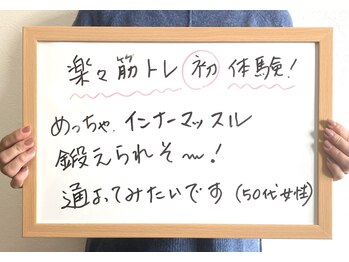 楽々筋トレ初体験!
めっちゃ、インナーマッスル
鍛えられそ〜!
通ってみたいです(50代女性)